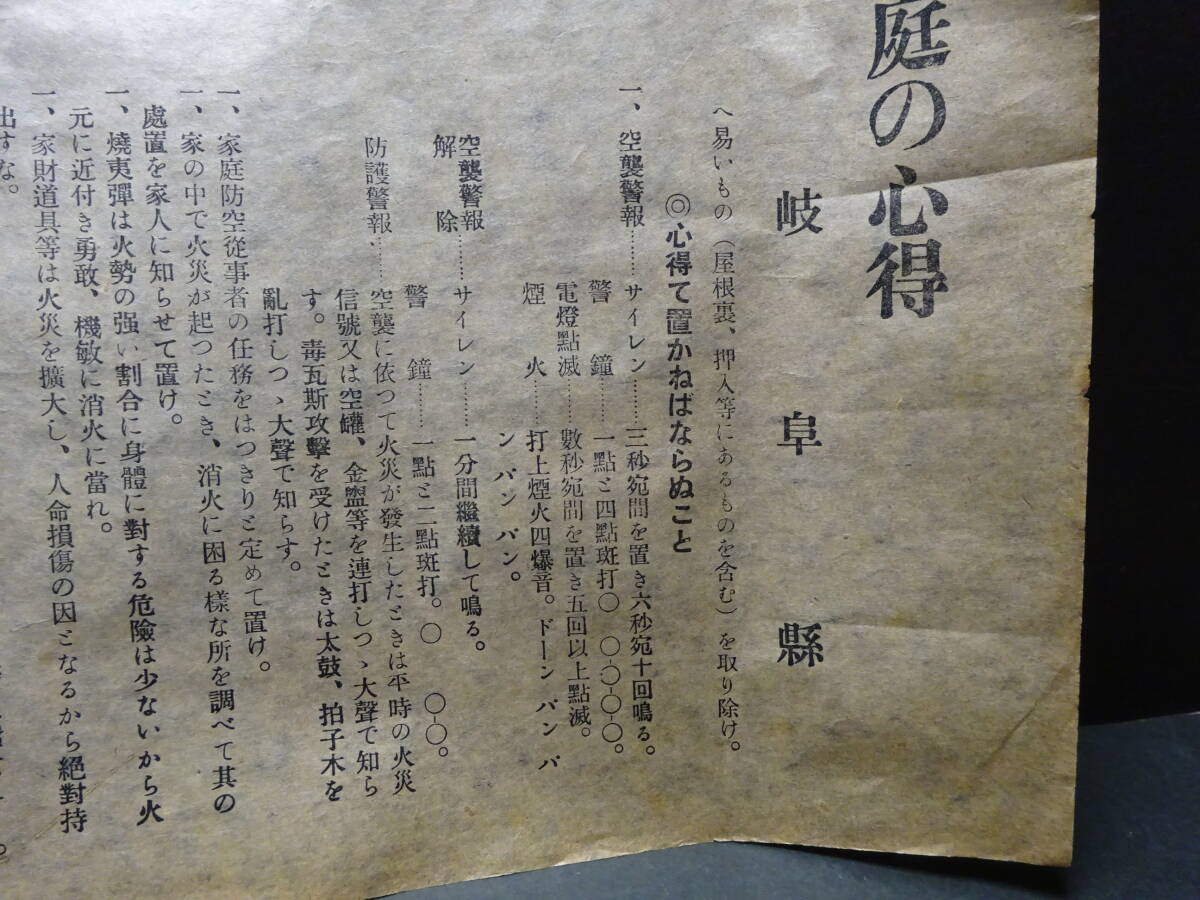 庭の心得
岐阜縣
へ易いもの（屋根裏、押入等にあるものを含む）を取り除け。
◎心得て置かねばならぬこと
一、空襲警報………サイレン………三秒宛間を置き六秒宛十回鳴る。
警鐘………一點と四點斑打〇 〇-〇-〇-〇。
電燈點滅………數秒宛間を置き五回以上點滅。
煙火………打上煙火四爆音。ドーン バン バ
ン バン バン。
空襲警報解除………サイレン………一分間繼續して鳴る。
警鐘………一點と二點斑打。〇 〇-〇。
防護警報………空襲に依つて火災が發生したときは平時の火災
信號又は空罐、金盥等を連打しつゝ大聲で知ら
す。毒瓦斯攻擊を受けたときは太鼓、拍子木を
亂打しつゝ大聲で知らす。
一、家庭防空從事者の任務をはつきりと定めて置け。
一、家の中で火災が起つたとき、消火に困る樣な所を調べて其の
處置を家人に知らせて置け。
一、燒夷彈は火勢の强い割合に身體に對する危險は少ないから火
元に近付き勇敢、機敏に消火に當れ。
一、家財道具等は火災を擴大し、人命損傷の因となるから絕對持
出すな。